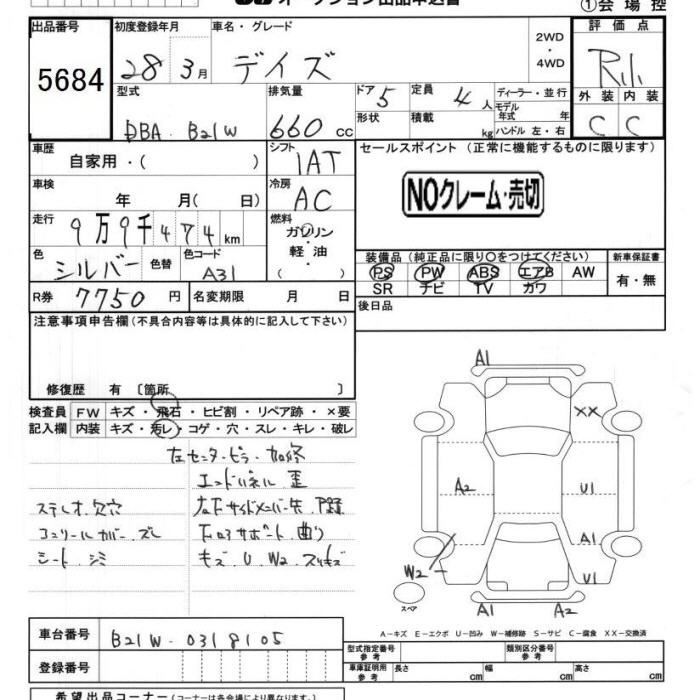 ①会場控
出品番号 初度登録年月 車名・グレード 2WD・4WD 評価点
5684 28年3月 デイズ R
型式 排気量 ドア 定員 ディーラー・並行 外装 内装
DBA-B21W 660cc 5 4人 モデル年式 年 C C
形状 積載 kg ハンドル 左・右
車歴 シフト セールスポイント(正常に機能するものに限ります)
自家用・( ) IAT
車検 冷房 NOクレーム・売切
年 月( 日) AC
走行 燃料
9万9千474km ガソリン・軽油・( )
色 色替 色コード 装備品(純正品に限り〇をつけてください) 新車保証書
シルバー A31 PS PW ABS エアB AW 有・無
SR ナビ TV カワ
R券 7750円 名変期限 月 日 後日品
注意事項申告欄(不具合内容等は具体的に記入して下さい)
修復歴 有 〔箇所 〕
検査員 FW キズ・飛石・ヒビ割・リペア跡・×要
記入欄 内装 キズ・汚レ・コゲ・穴・スレ・キレ・破レ
左センターピラー加修
エンドパネル 歪
ステレオ欠穴
コンソールカバー ズレ
シート シミ
キズ.U.W2.スリキズ
A1
XX
A2 U1
A1
W2 U1
スペア
A1 A2
A-キズ E-エクボ U-凹み W-補修跡 S-サビ C-腐食 XX-交換済
車台番号 B21W-0318105
登録番号
型式指定番号 参考 類別区分番号 参考
車庫証明用 参考 長さ cm 幅 cm 高さ cm
希望出品コーナー(コーナーは各会場により異なります)